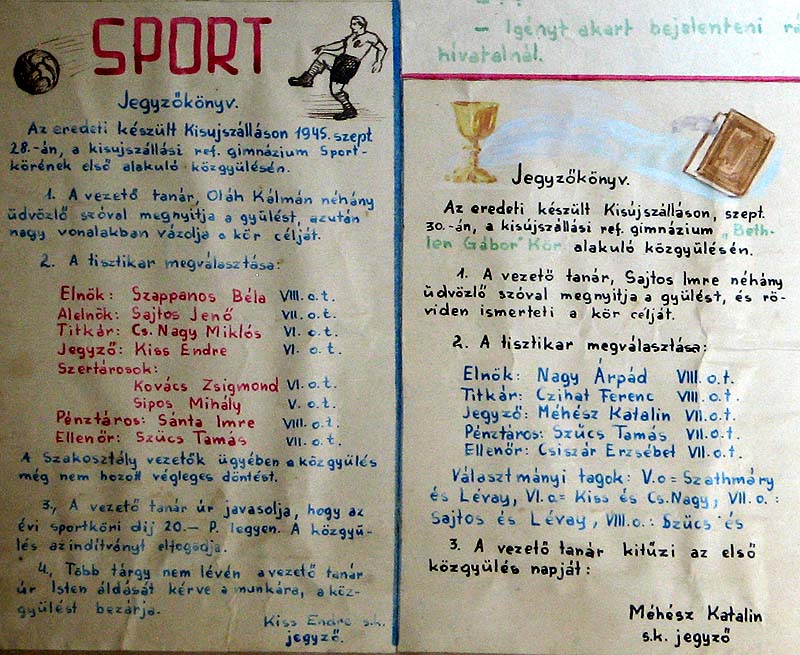 SPORT
Jegyzőkönyv.
Az eredeti készült Kisujszálláson 1945. szept.
28.-án, a kisujszállási ref. gimnázium Sport-
körének első alakuló közgyülésén.
1. A vezető tanár, Oláh Kálmán néhány
üdvözlő szóval megnyitja a gyülést, azután
nagy vonalakban vázolja a kör célját.
2. A tisztikar megválasztása:
Elnök: Szappanos Béla VIII. o. t.
Alelnök: Sajtos Jenő VII. o. t.
Titkár: Cs. Nagy Miklós VI. o. t.
Jegyző: Kiss Endre VI. o. t.
Szertárosok:
Kovács Zsigmond VI. o. t.
Sipos Mihály V. o. t.
Pénztáros: Sánta Imre VIII. o. t.
Ellenőr: Szücs Tamás VII. o. t.
A Szakosztály vezetők ügyében a közgyülés
még nem hozott végleges döntést.
3., A vezető tanár úr javasolja, hogy az
évi sportköri dij 20.- P. legyen. A közgyü-
lés azindítványt elfogadja.
4., Több tárgy nem lévén a vezető tanár
úr Isten áldását kérve a munkára, a köz-
gyülést bezárja.
Kiss Endre s.k.
jegyző.
- Igényt akart bejelenteni
hivatalnál.
Jegyzőkönyv.
Az eredeti készült Kisújszálláson, szept.
30.-án, a kisújszállási ref. gimnázium „Beth-
len Gábor" Kör alakuló közgyülésén.
1. A vezető tanár, Sajtos Imre néhány
üdvözlő szóval megnyitja a gyülést, és rö-
viden ismerteti a kör célját.
2. A tisztikar megválasztása:
Elnök: Nagy Árpád VIII. o. t.
Titkár: Czihat Ferenc VIII. o. t.
Jegyző: Méhész Katalin VII. o. t.
Pénztáros: Szűcs Tamás VII. o. t.
Ellenőr: Csiszár Erzsébet VII. o. t.
Választmányi tagok: V.o = Szathmáry
és Lévay, VI.o = Kiss és Cs. Nagy; VII. o. :
Sajtos és Lévay, VIII.o. : Szücs és
3. A vezető tanár kitűzi az első
közgyülés napját :
Méhész Katalin
s.k. jegyző